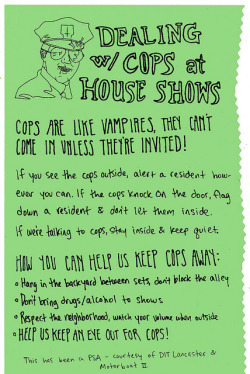 DEALING
W/ COPS at
HOUSE SHOWS
COPS ARE LIKE VAMPIRES, THEY CAN'T
COME IN UNLESS THEY'RE INVITED!
If you see the cops outside, alert a resident how-
ever you can. If the cops knock on the door, flag
down a resident & don't let them inside.
If we're talking to cops, stay inside & keep quiet.
HOW YOU CAN HELP US KEEP COPS AWAY:
• Hang in the backyard between sets, don't block the alley
• Don't bring drugs/alcohol to shows
• Respect the neighborhood, watch your volume when outside
• HELP US KEEP AN EYE OUT FOR COPS!
This has been a PSA - courtesy of DIT Lancaster &
Motorboat II.